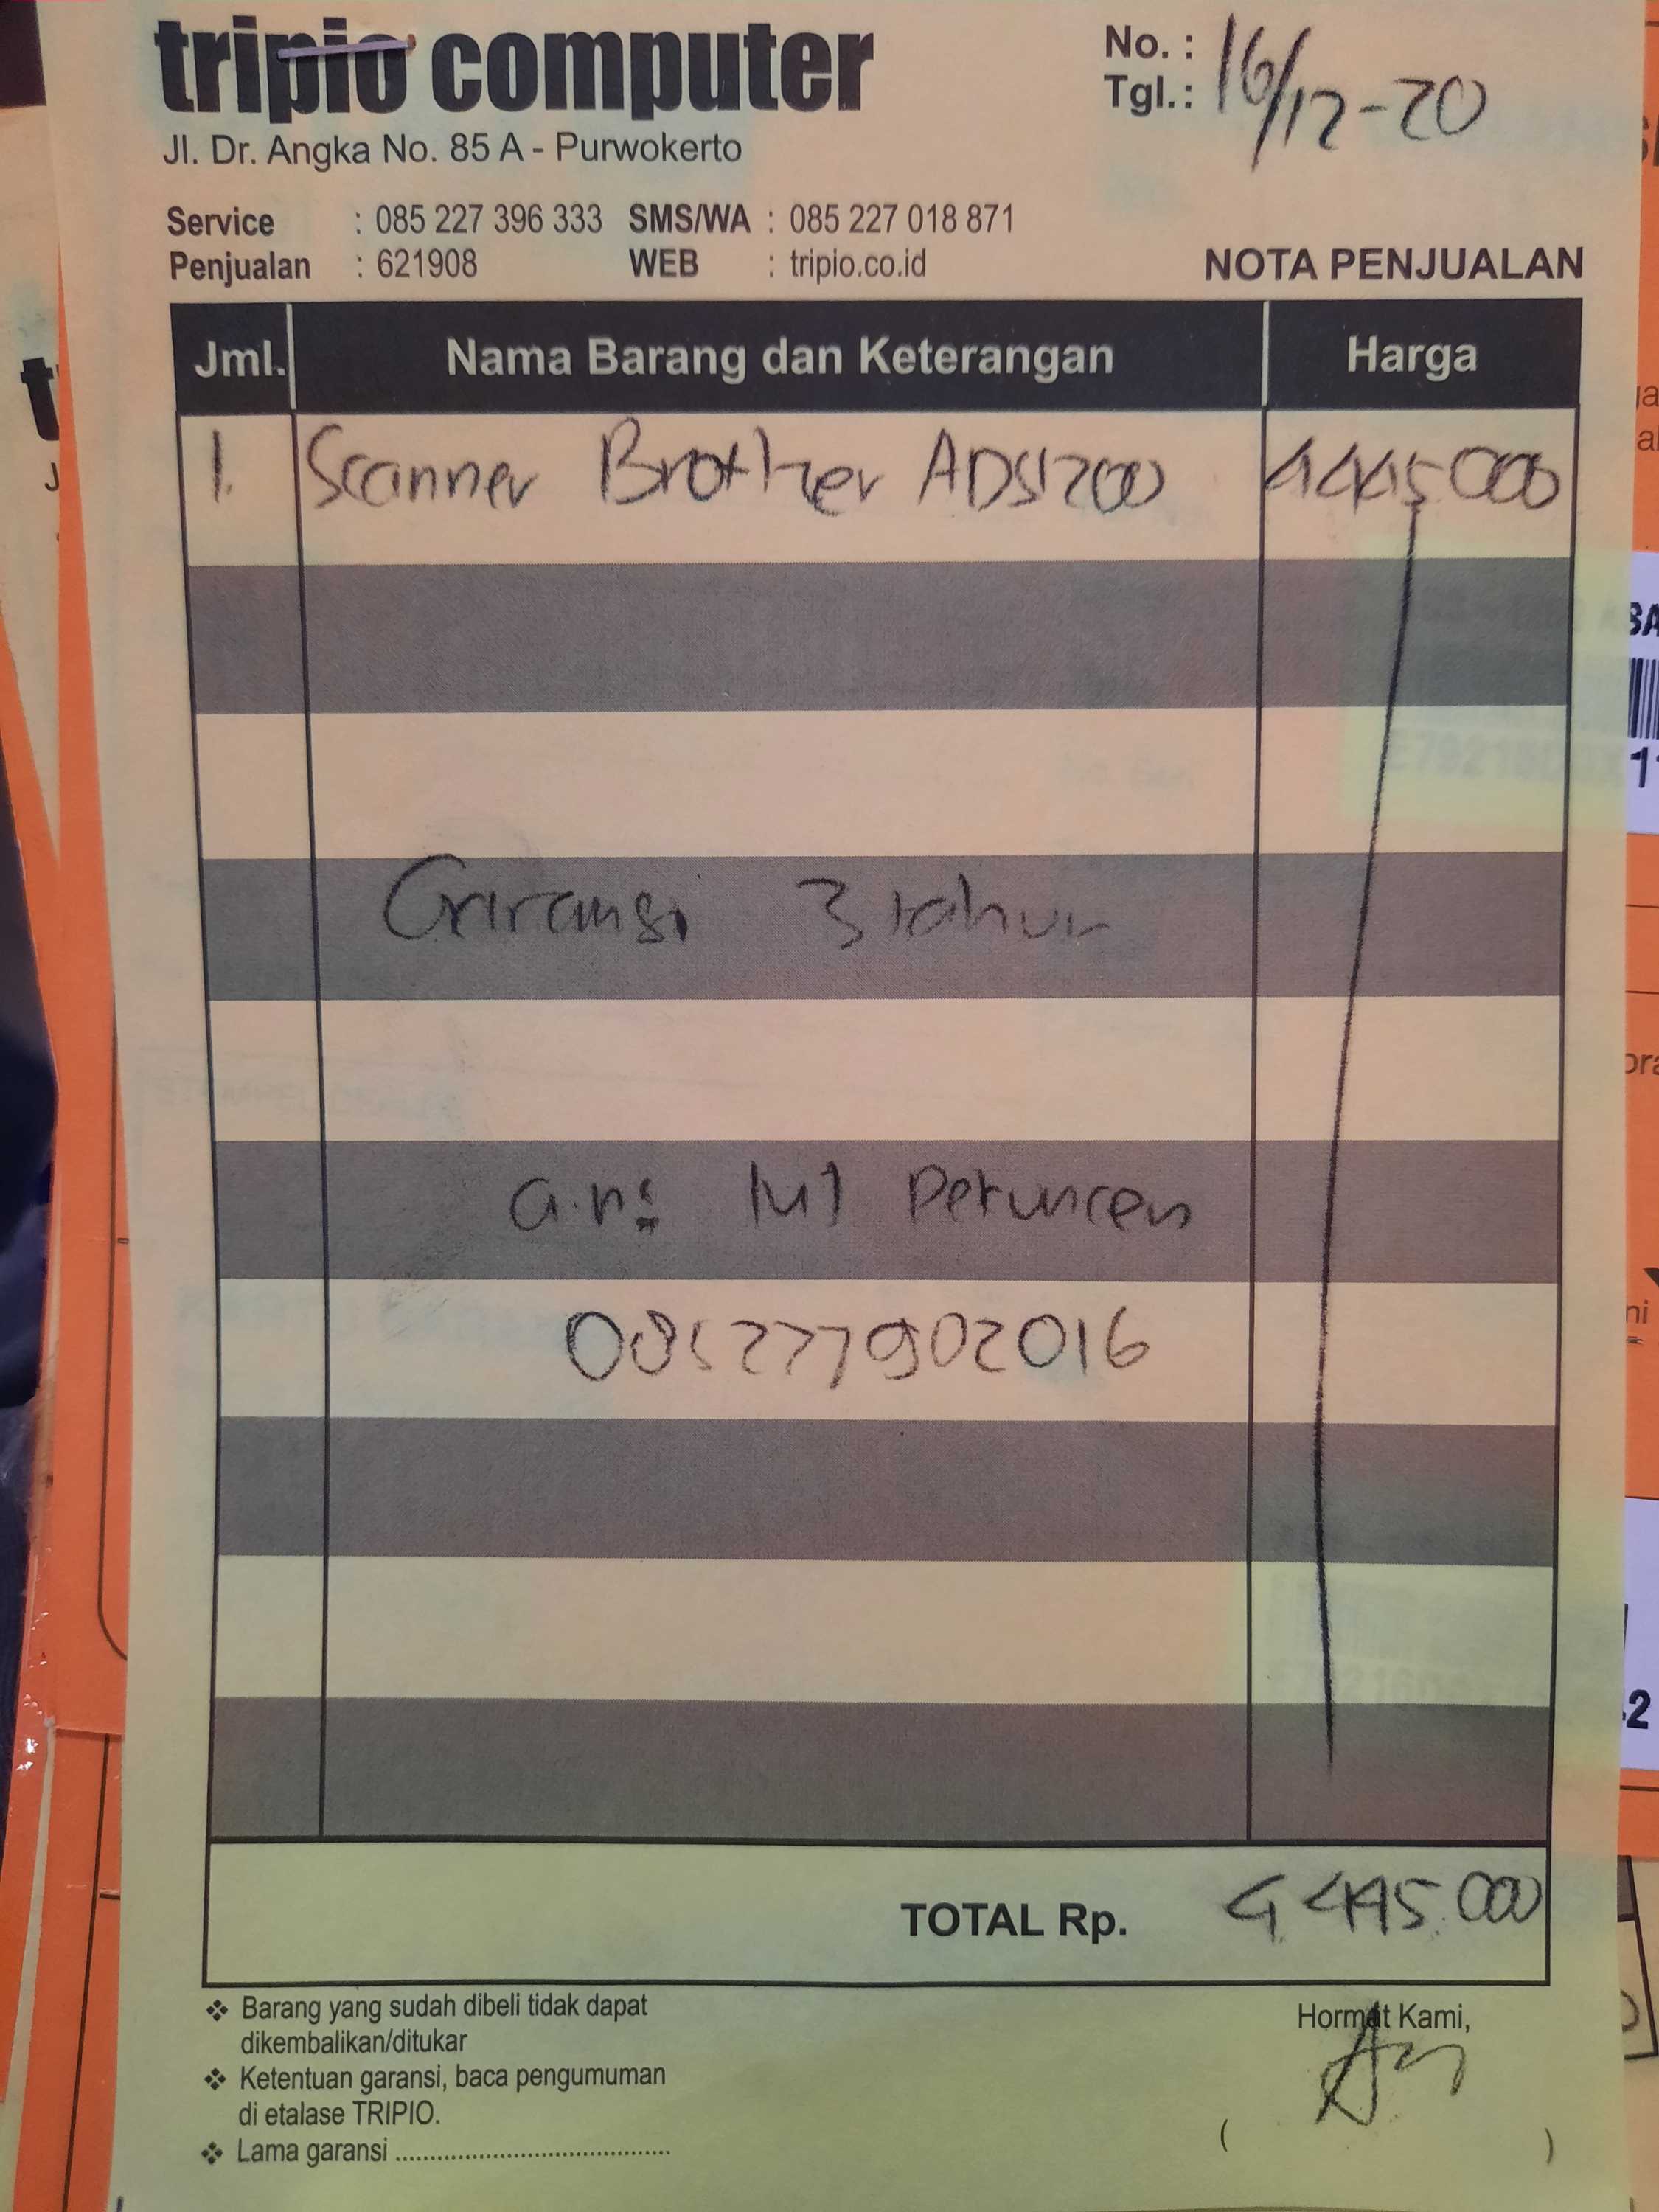 tripio computer
Jl. Dr. Angka No. 85 A - Purwokerto
No. :
Tgl.: 16/12-20
Service : 085 227 396 333 SMS/WA : 085 227 018 871
Penjualan : 621908 WEB : tripio.co.id
NOTA PENJUALAN
Jml. Nama Barang dan Keterangan Harga
1. Scanner Brother ADS1200 4445.000
Garansi 3 tahun
a.n:
085227902016
TOTAL Rp. 4.445.000
❖ Barang yang sudah dibeli tidak dapat
dikembalikan/ditukar
❖ Ketentuan garansi, baca pengumuman
di etalase TRIPIO.
❖ Lama garansi ........................................
Hormat Kami,
( )